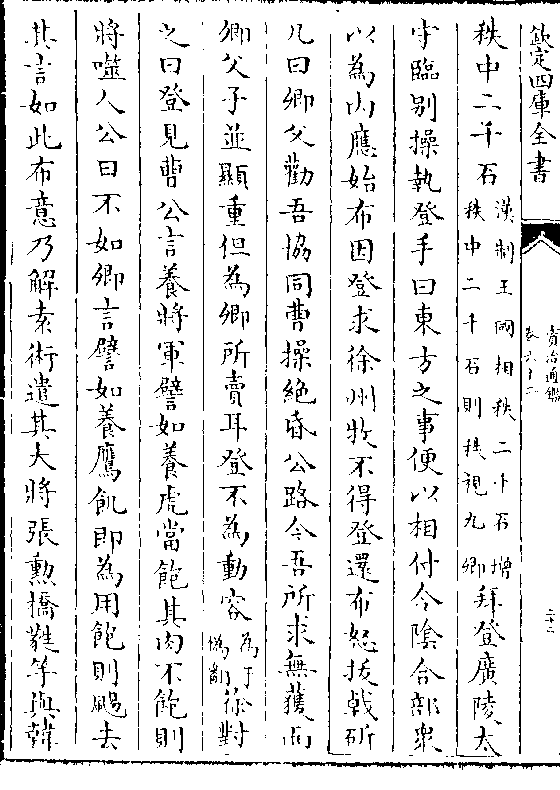 欽定四庫全書
資治通鑑
卷六十二
二十二
秩中二千石漢制王國相秩二千石增秩中二千石則秩視九卿拜登廣陵太
守臨别操執登手曰東方之事便以相付令隂合部衆
以為内應始布因登求徐州牧不得登還布怒拔戟斫
几曰卿父勸吾協同曹操絶昏公路今吾所求無獲而
卿父子並顯重但為卿所賣耳登不為動容為于偽翻徐對
之曰登見曹公言養將軍譬如養虎當飽其肉不飽則
將噬人公曰不如卿言譬如養鷹飢即為用飽則颺去
其言如此布意乃解袁術遣其大將張勲橋蕤等與韓